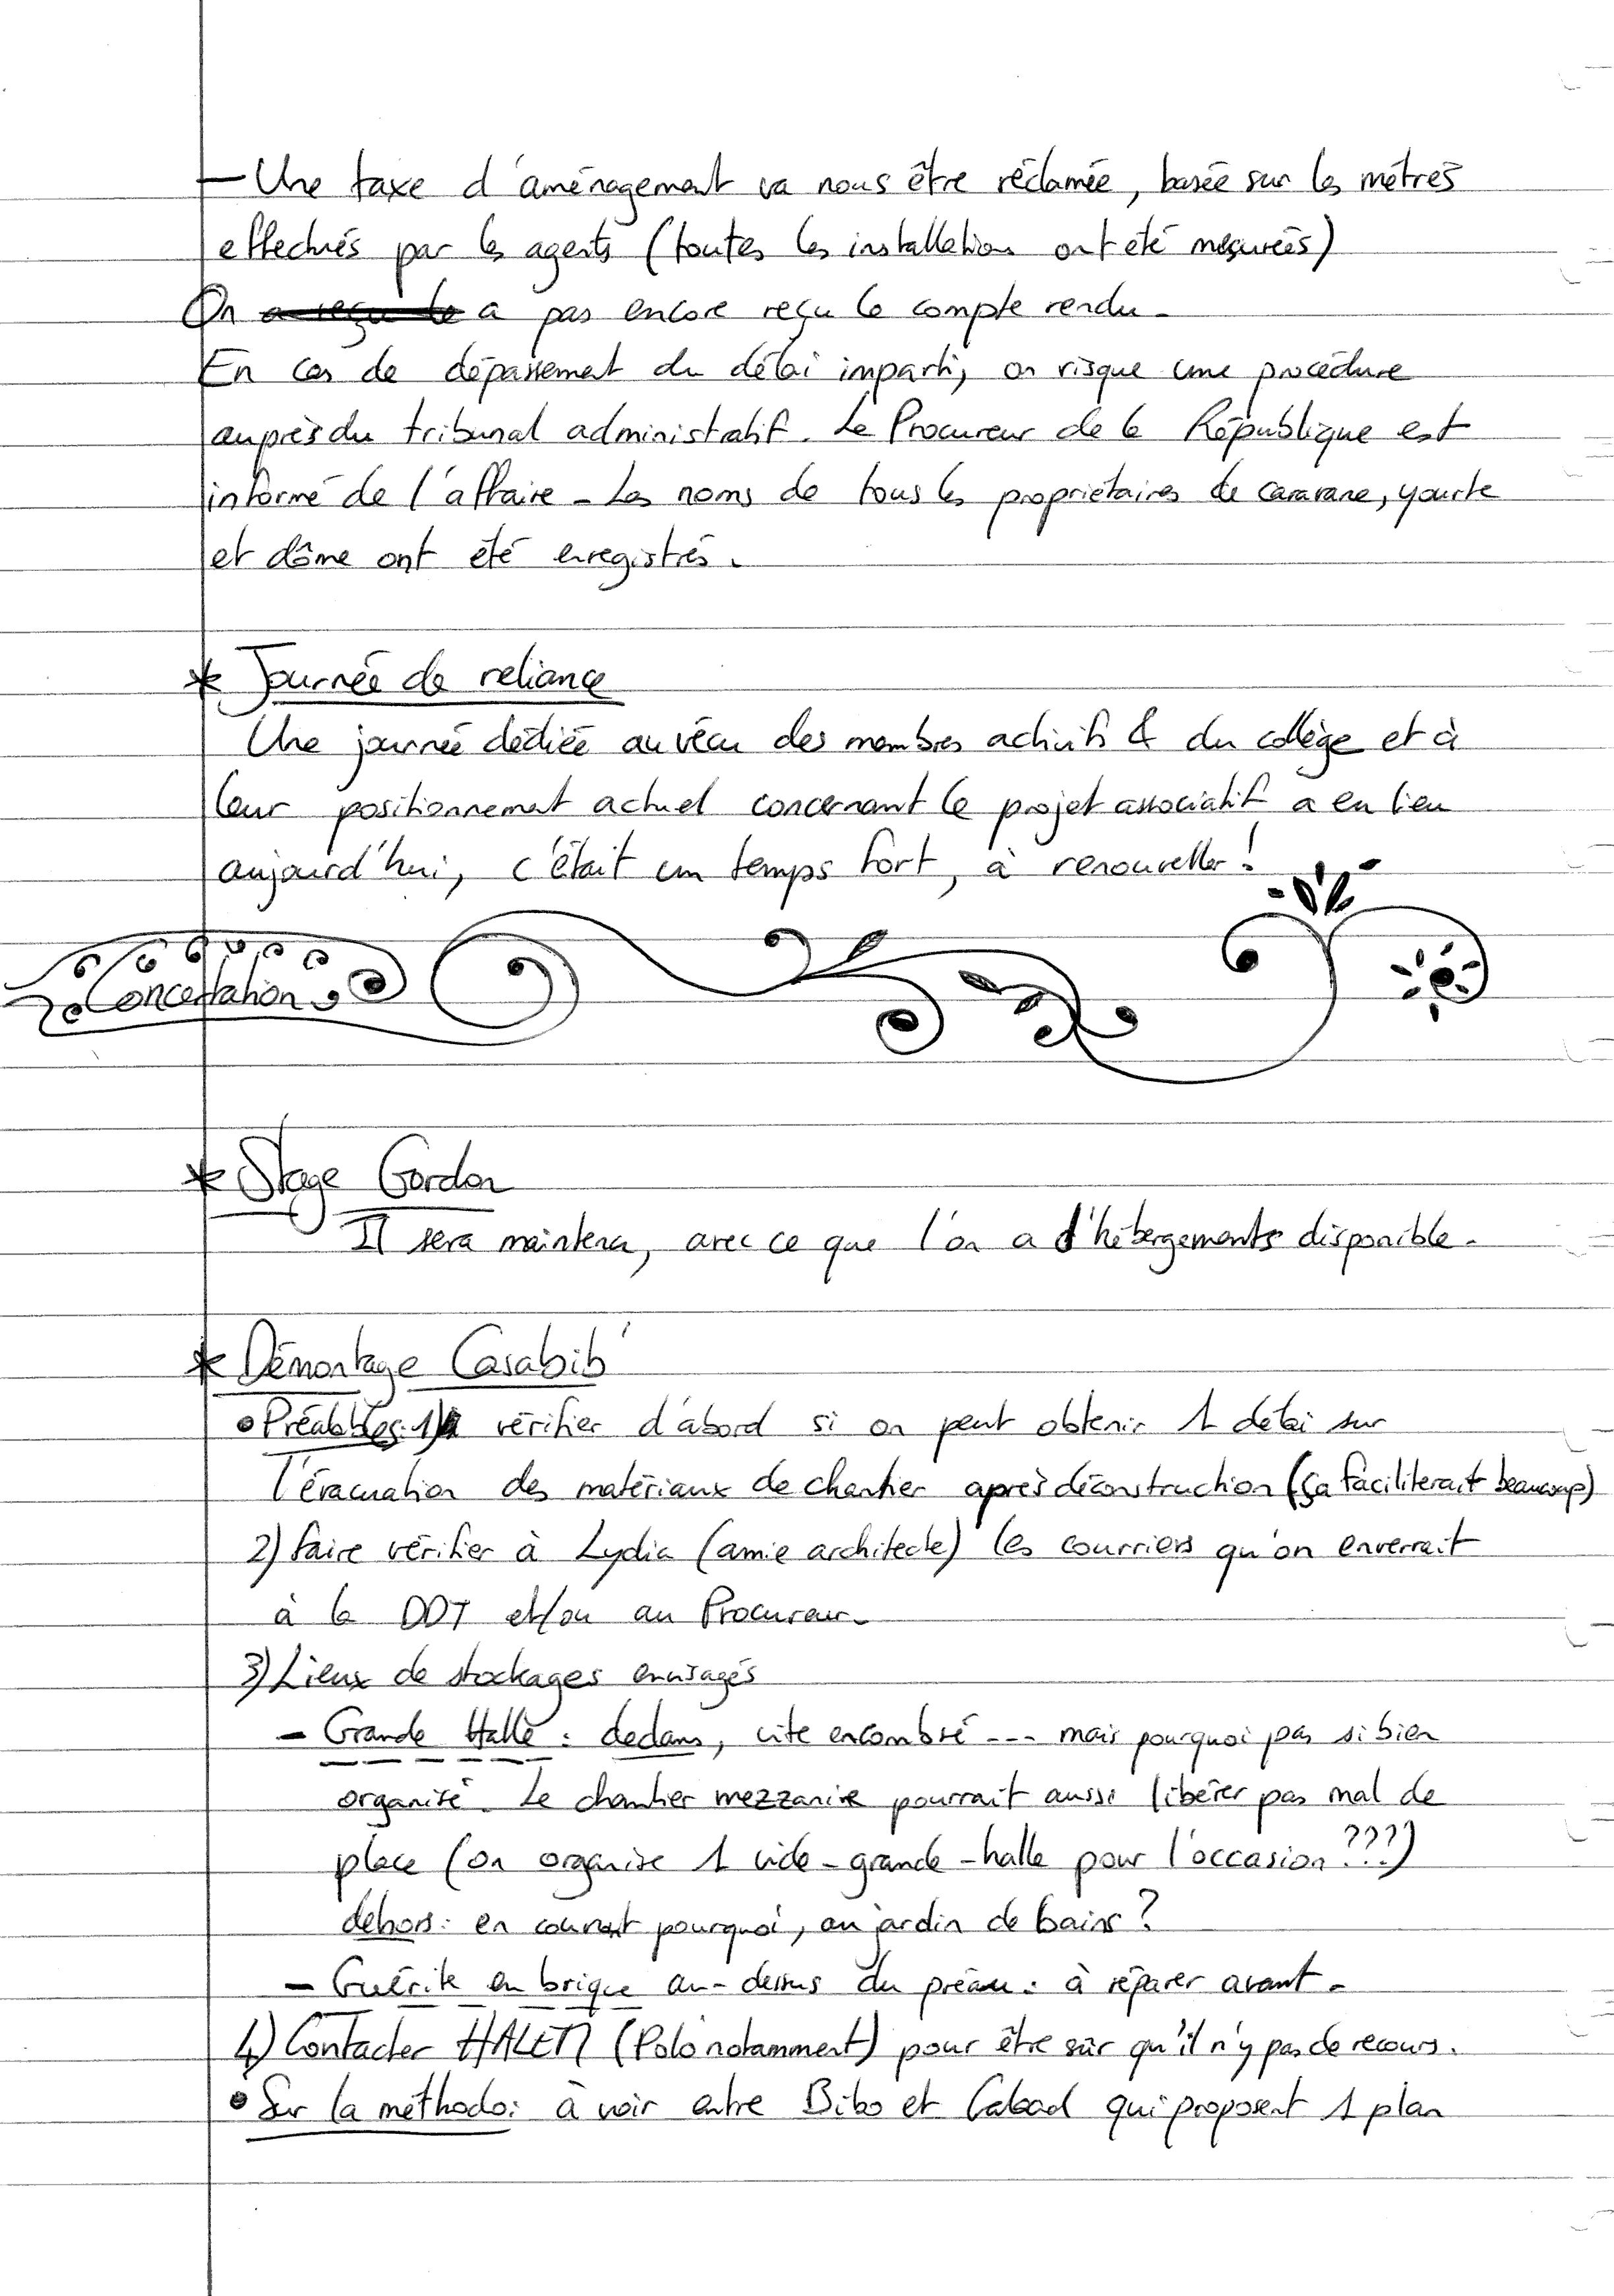 - Une taxe d'aménagement va nous être réclamée, basée sur les métrés
effectués par les agents (toutes les installations ont été mesurées)
On a reçu le a pas encore reçu le compte rendu.
En cas de dépassement du délai imparti, on risque une procédure
auprès du tribunal administratif. Le Procureur de la République est
informé de l'affaire - Les noms de tous les propriétaires de caravane, yourte
et dôme ont été enregistrés.
* Journée de reliance
Une journée dédiée au vécu des membres actifs & du collège et à
leur positionnement actuel concernant le projet associatif a eu lieu
aujourd'hui, c'était un temps fort, à renouveller !
Concertation
* Stage Gordon
Il sera maintenu, avec ce que l'on a d'hébergements disponible.
* Démontage Casabib'
• Préables: 1) vérifier d'abord si on peut obtenir 1 délai sur
l'évacuation des matériaux de chantier après déconstruction (ça faciliterait beaucoup)
2) faire vérifier à Lydia (amie architecte) les courriers qu'on enverrait
à la DDT et/ou au Procureur.
3) Lieux de stockages envisagés
- Grande Halle : dedans, vite encombré --- mais pourquoi pas si bien
organisé. Le chantier mezzanine pourrait aussi libérer pas mal de
place (on organise 1 vide-grande-halle pour l'occasion ???)
dehors: en couvrant pourquoi, au jardin de bains ?
- Guérite en brique au-dessus du préau : à réparer avant.
4) Contacter HALEM (Polo notamment) pour être sûr qu'il n'y pas de recours.
• Sur la méthodo: à voir entre Bibo et Cabad qui proposent 1 plan